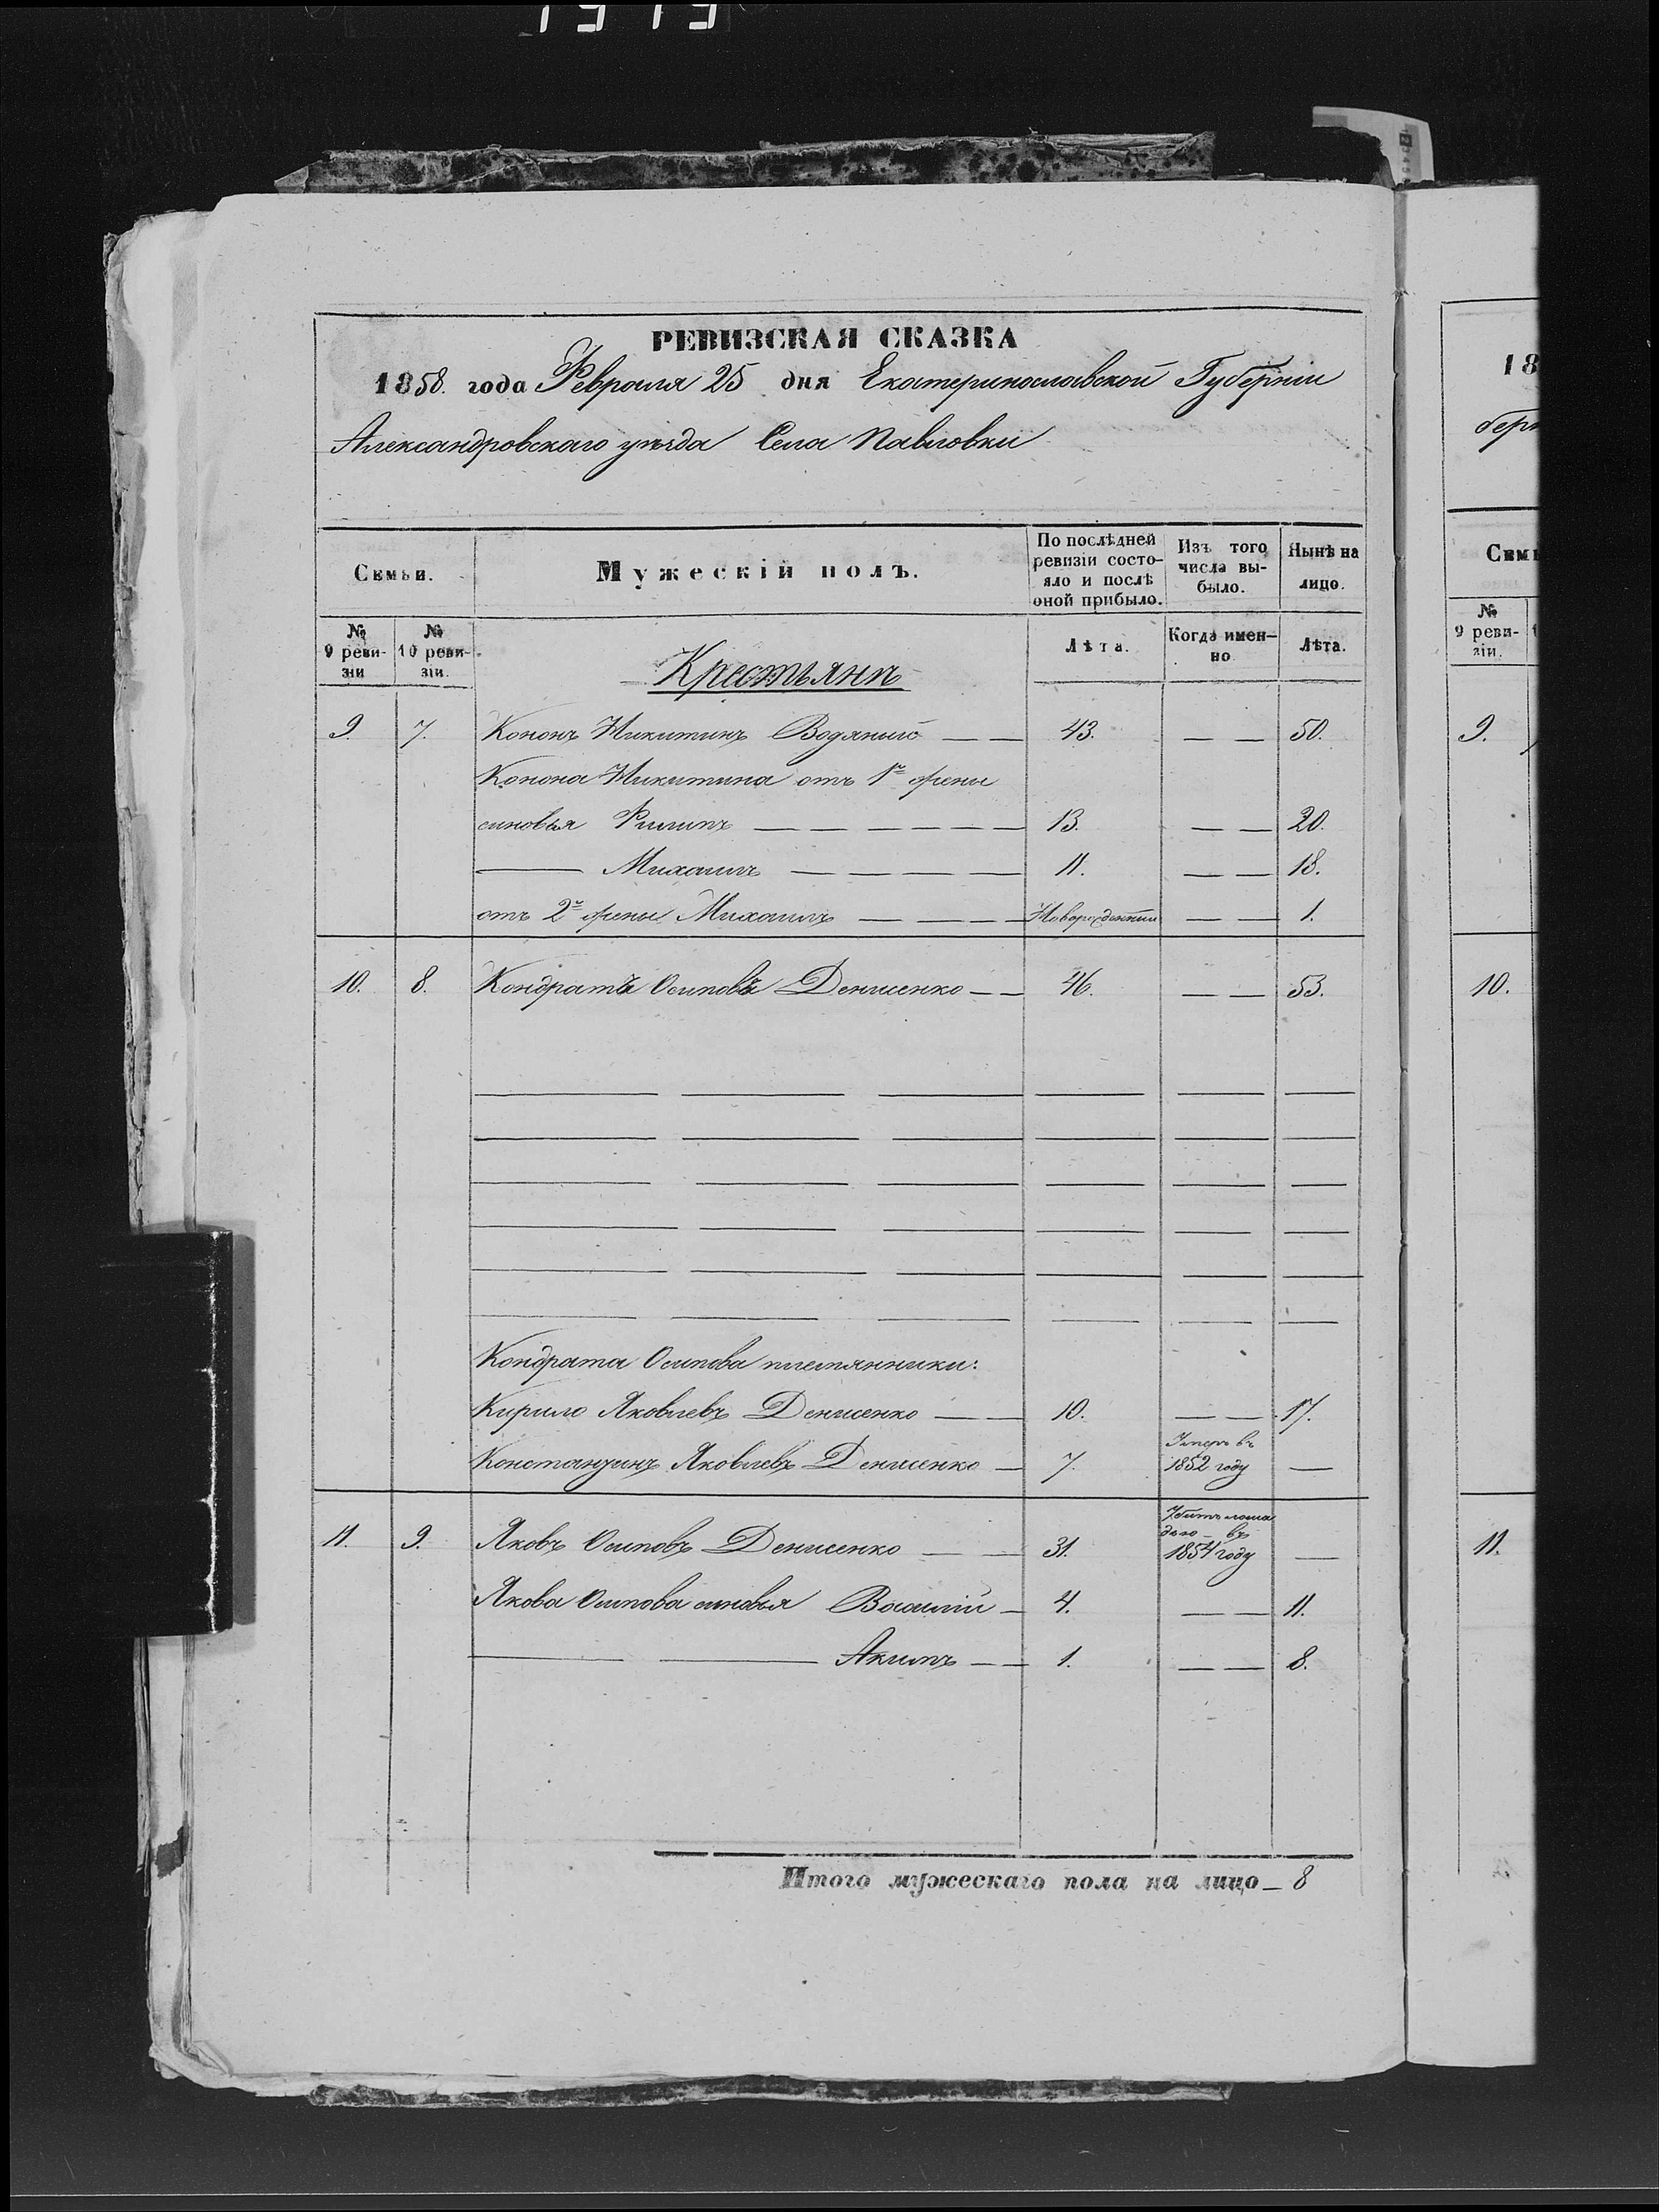 РЕВИЗСКАЯ СКАЗКА
1858. года Февраля 25 дня Екатеринославской Губерніи
Александровскаго уѣзда Села Павловки
Семьи.
Мужескій полъ.
По послѣдней ревизіи состояло и послѣ оной прибыло.
Изъ того числа выбыло.
Нынѣ на лицо.
№ 9 ревизіи
№ 10 ревизіи.
Крестьянъ
Лѣта.
Когда именно
Лѣта.
9. 7. Кононъ Никитинъ Водяный — — 43. — — 50.
Конона Никитина отъ 1й жены
сыновья Филипъ — — — — — — 13. — — 20.
— Михаилъ — — — — 11. — — 18.
отъ 2й жены Михаилъ — — — Новорожденный — — 1.
10. 8. Кондратъ Осиповъ Денисенко — — 46. — — 53.
Кондрата Осипова племянники:
Кирило Яковлевъ Денисенко — — 10. — — 17.
Константинъ Яковлевъ Денисенко — 7. Умеръ въ 1852 году —
11. 9. Яковъ Осиповъ Денисенко — — 31. Убитъ лошадью въ 1854 году —
Якова Осипова сыновья Василій — 4. — — 11.
— — Акимъ — — 1. — — 8.
Итого мужескаго пола на лицо — 8
18
берн
Семь
№ 9 ревизіи.
9.
10.
11.